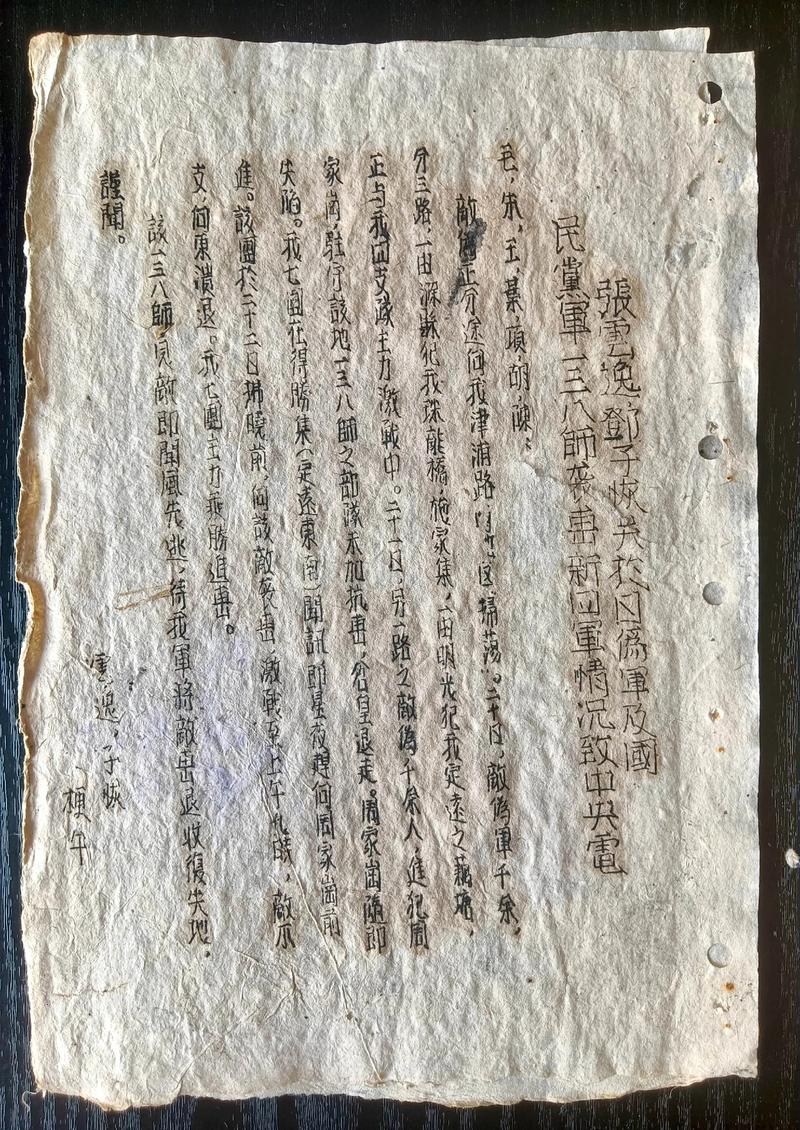 張雲逸鄧子恢关於日偽軍及國
民黨軍一三八師袭击新四軍情况致中央電
毛，朱，王，葉，項，胡，陳：
敵偽正分途向我津浦路区掃荡。二十日，敵偽軍千余，
分三路，一由滁縣犯我珠龍橋，施家集，一由明光犯我定遠之藕塘，
正与我四支战主力激戰中。二十一日，另一路之敵偽千余人，進犯周
家崗，駐守該地一三八師之部隊未加抗击，仓皇退走。周家崗隨即
失陷。我七團在得勝集（定遠東南）聞訊即星夜趕向周家崗前
進。該團於二十二日拂曉前，向該敵袭击，激戰至上午九時，敵不
支，向東潰退。我七團主力乘勝追击。
該一三八師，見敵即聞風先逃，待我軍將敵击退，收復失地，
謹聞。
雲逸，子恢
梗午